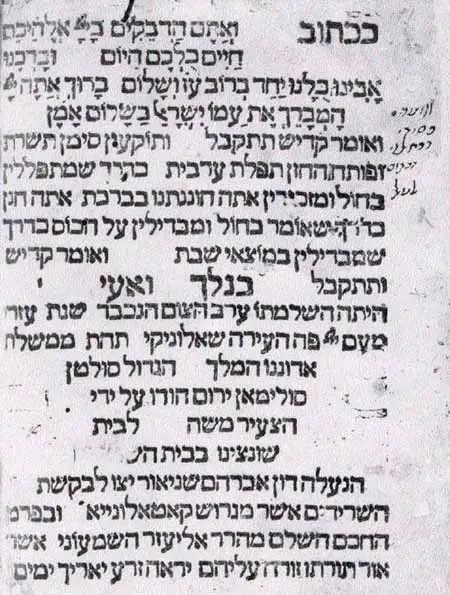 ככתוב ואתם הדבקים בייי אלהיכם
חיים כלכם היום וברכנו
אבינו כלנו יחד ברוב עז ושלום ברוך אתה יי
המברך את עמו ישראל בשלום אמן
ואומר קדיש תתקבל ותוקעין סימן תשרת
ופותח החזן תפלת ערבית כהדר שמתפללין
בחול ומזכירין אתה חוננתנו בברכת אתה חנן
כדרך שאומר בחול ומבדילין על הכוס כדרך
שמבדילין במוצאי שבת ואומר קדיש
ותתקבל בנלך ואעי
היתה השלמתו ערב הצום הנכבד שנת עזרי
מעם יי פה העירה שאלוניקי תחת ממשלת
אדוננו המלך הגדול סולטן
סולימאן ירום הודו על ידי
הצעיר משה לבית
שונצינו בבית
הנעלה דון אברהם שניאור יצו לבקשת
השרידים אשר מגרוש קאטאלונייא ובפרט
החכם השלם מהרר אליעזר השמעוני אשר
אור תורתו זורח עליהם יראה זרע יאריך ימים